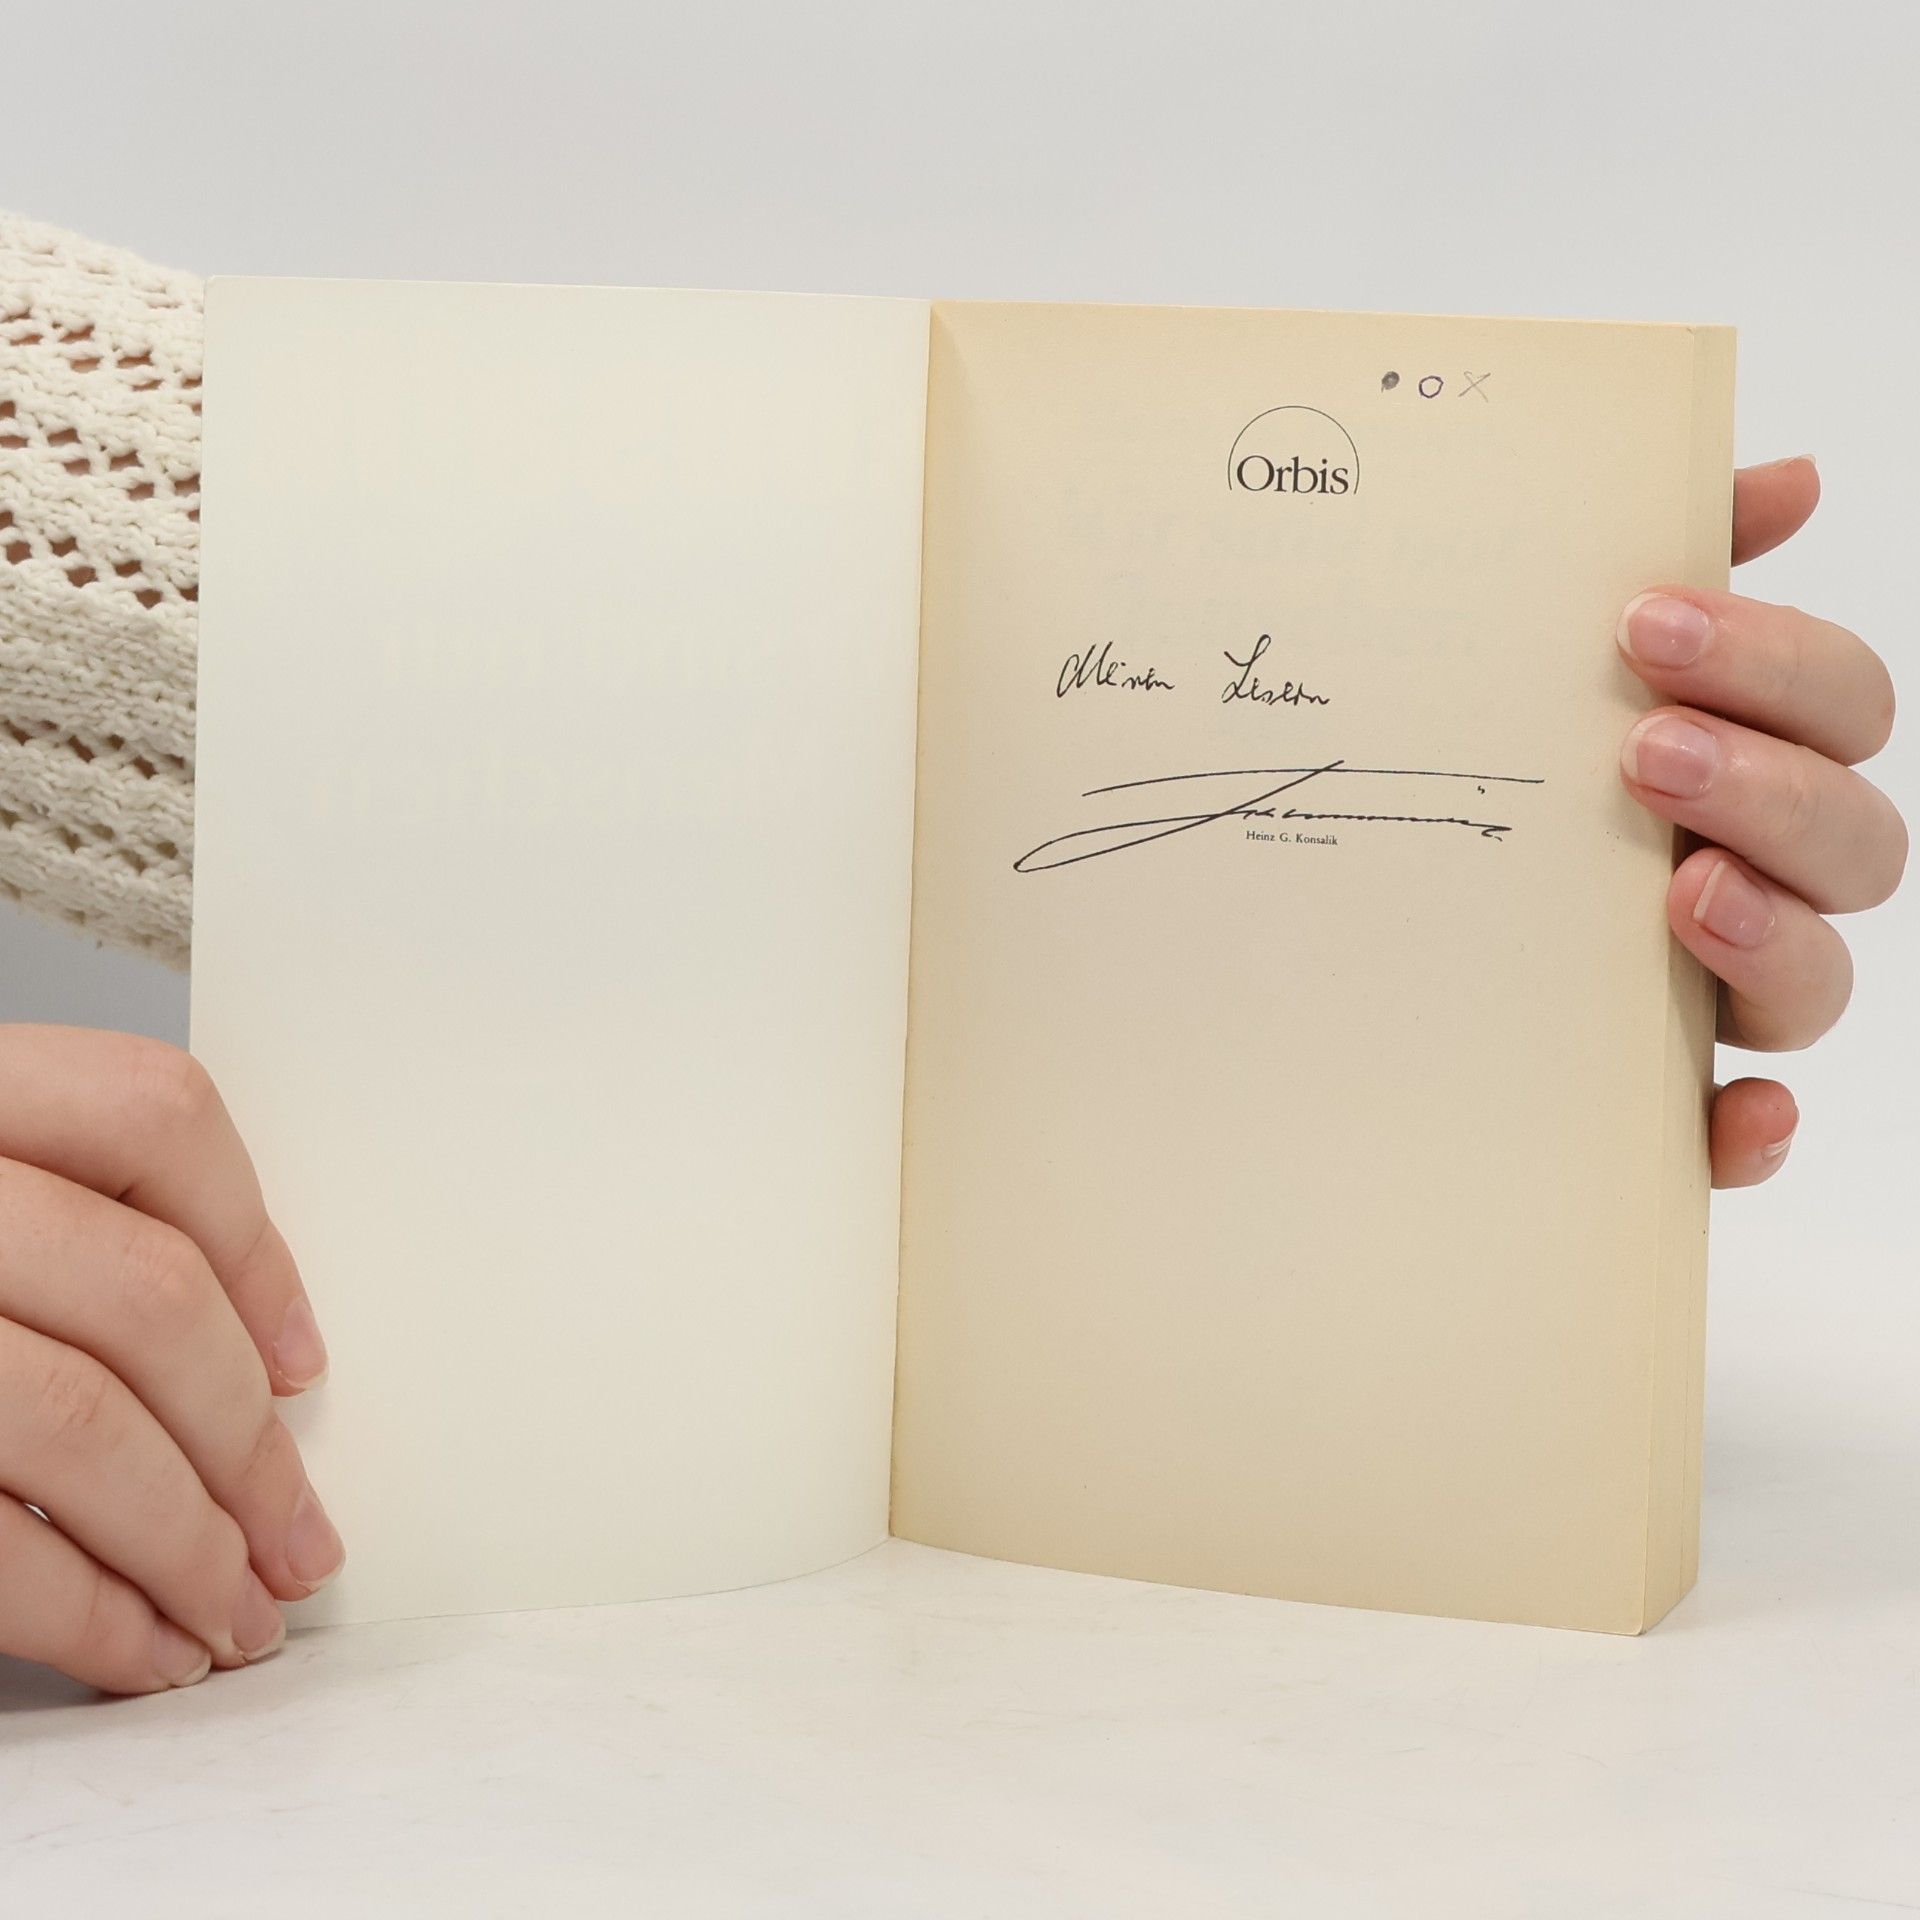 Orbis
Meinen Lesern
Heinz G. Konsalik